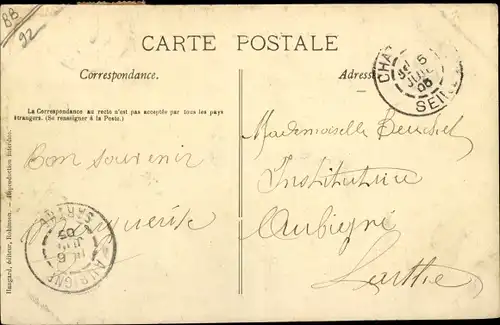 BB
92
CARTE POSTALE
Correspondance.
Adresse
La Correspondance au recto n'est pas acceptée par tous les pays
étrangers. (Se renseigner à la Poste.)
Bon souvenir
Mademoiselle
Institutrice
Aubigné
Sarthe
CHAT
5
JUIL
05
SEINE
AUBIGNÉ
6
05
SARTHE
Haugard, éditeur, Robinson. - Reproduction Interdite.